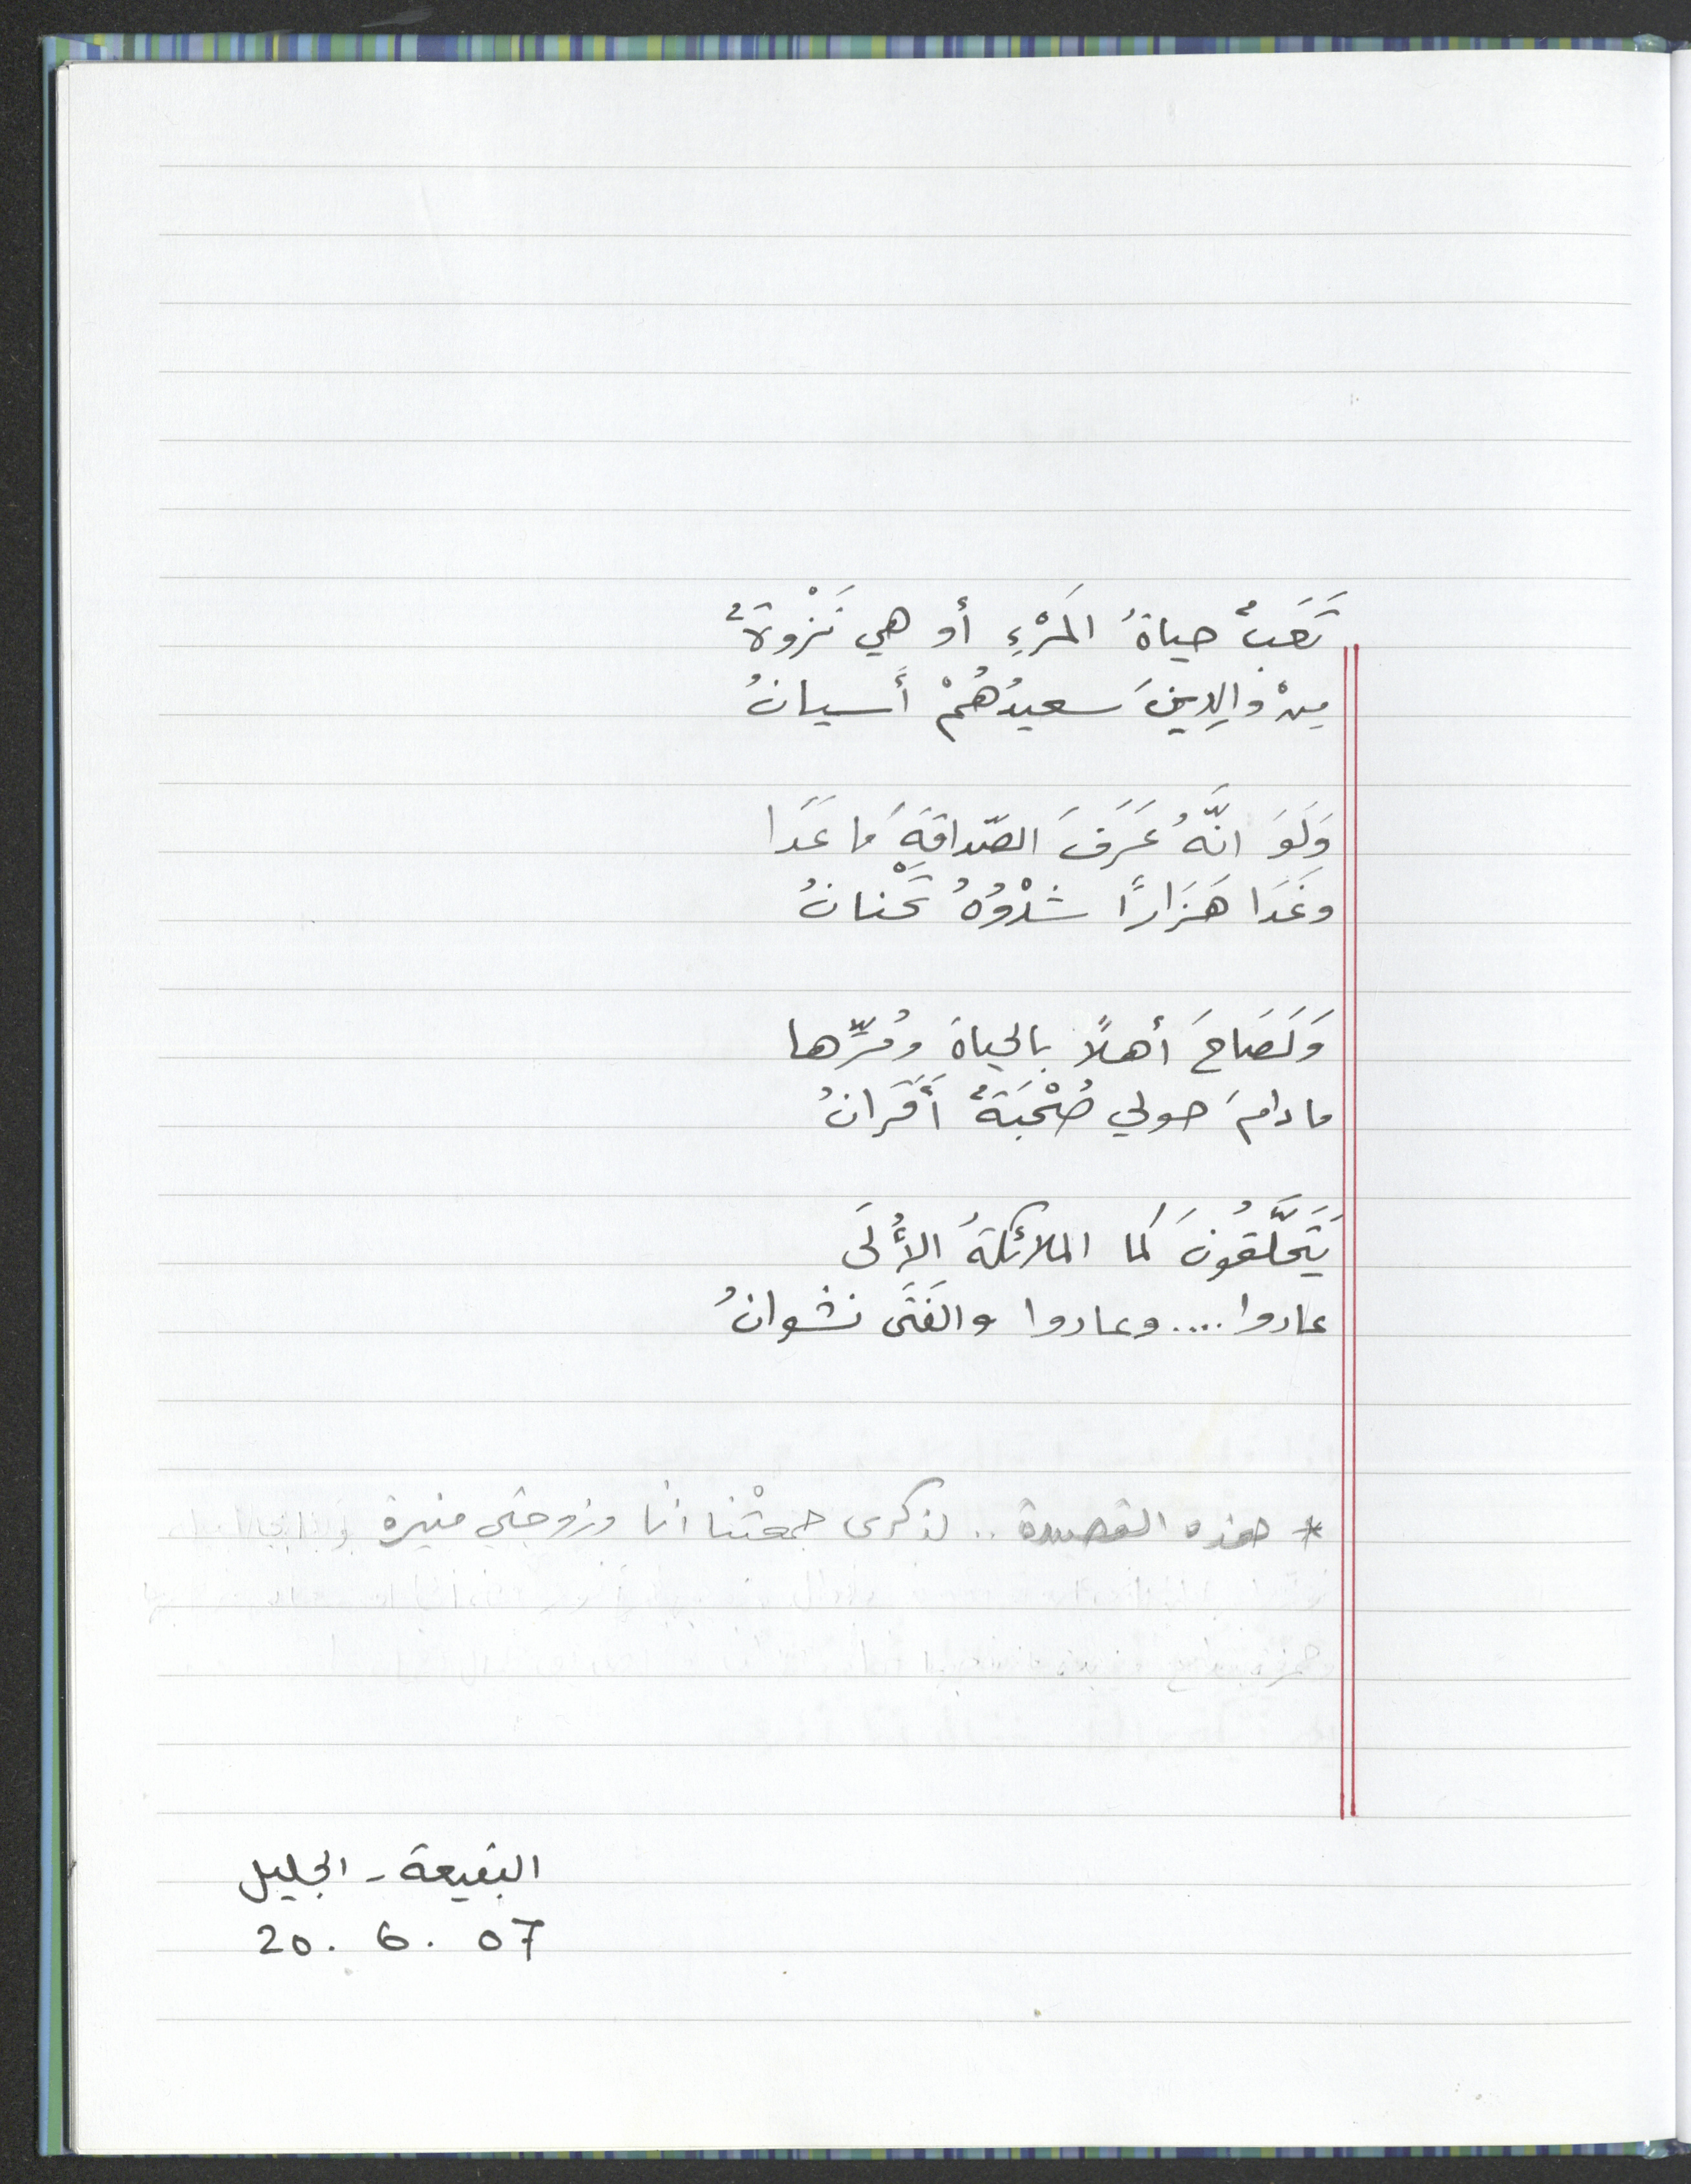 تَعَبٌ حياةُ المَرْءِ أو هي نَزْوةٌ
مِنْ والِدِينَ سعيدُهُمْ أَسيانُ
وَلَوَ انَّهُ عَرَفَ الصّداقَةِ مَا عَدَا
وغَدَا هَزَارًا شدْوُهُ تَحْنانُ
وَلَصَاحَ أهلاً بالحياة ومُرِّها
ما دامَ حولي صُحْبَةٌ أَقْرَانُ
يَتَحَلَّقُونَ كما الملائكةُ الأُلَى
عادوا .... وعادوا والفَتَى نشوانُ
* هذه القصيدة .. لذكرى جمعتْنا أنا وزوجتي منيرة
البقيعة - الجليل
20. 6. 07